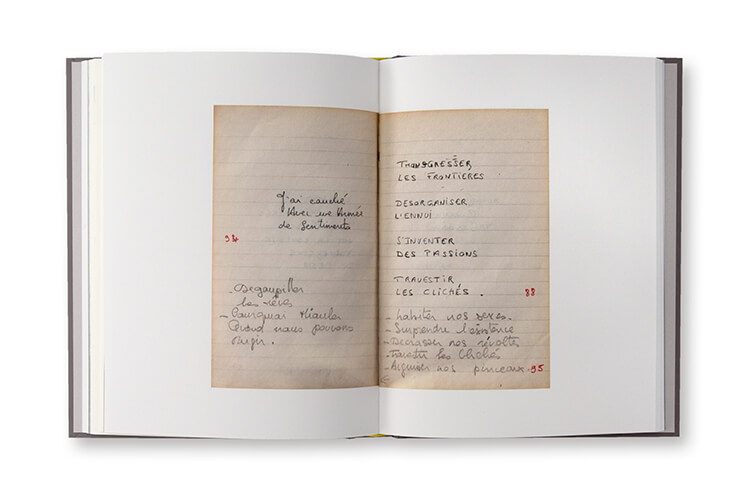 J'ai couché
Avec une Armée
de Sentiments
94
- Dégoupiller
les rêves
- Pourquoi Miauler
Quand nous pouvons
Rugir.
TRANSGRESSER
LES FRONTIERES
DESORGANISER
L'ENNUI
S'INVENTER
DES PASSIONS
TRAVESTIR
LES CLICHÉS.
88
- habiter nos rêves.
- Suspendre l'existence
- nos révoltes
- Travestir les Clichés
- Aiguiser nos pinceaux
95